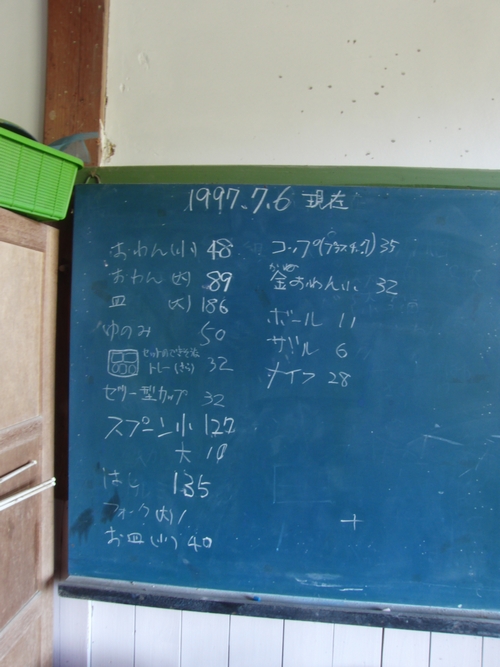 1997.7.6 現在
おわん(小) 48
おわん(大) 89
皿 (大) 186
ゆのみ 50
トレー 32
ゼリー型カップ 32
スプーン小 127
大 10
はし 135
フォーク(大) 1
お皿(小) 40
コップ(プラスチック) 35
金おわん小 32
ボール 11
ザル 6
ナイフ 28